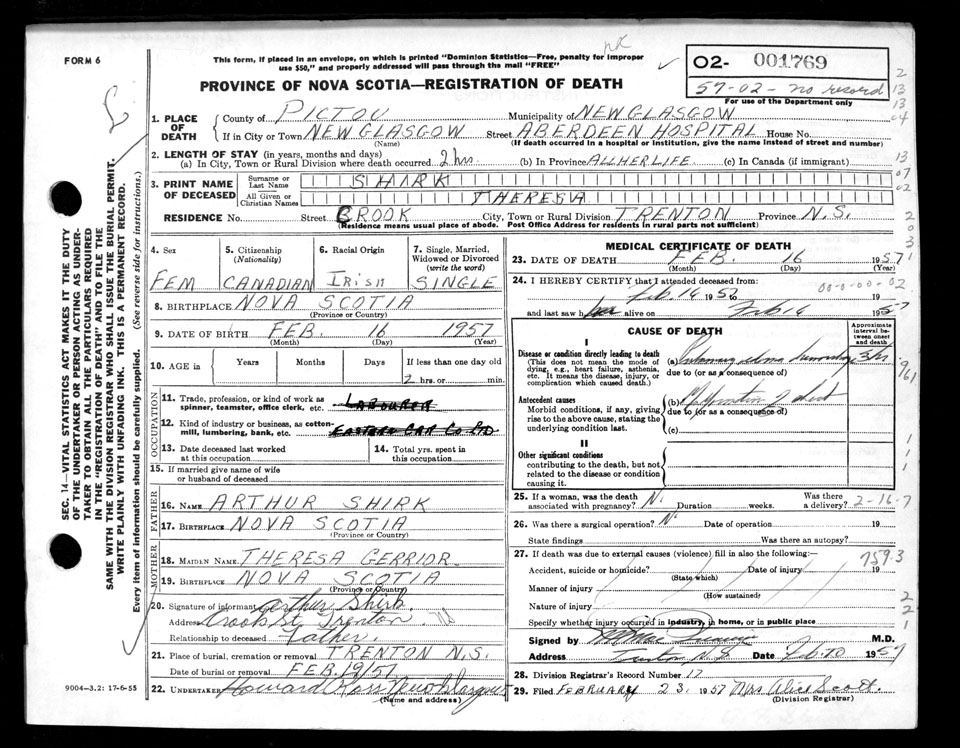 FORM 6
This form, if placed in an envelope, on which is printed "Dominion Statistics—Free, penalty for improper
use $50," and properly addressed will pass through the mail "FREE"
PROVINCE OF NOVA SCOTIA—REGISTRATION OF DEATH
02- 001769
57-02 - no record
For use of the Department only
1. PLACE OF DEATH
County of PICTOU Municipality of NEW GLASGOW
If in City or Town NEW GLASGOW Street ABERDEEN HOSPITAL House No.
(Name) (If death occurred in a hospital or institution, give the name instead of street and number)
2. LENGTH OF STAY (in years, months and days)
(a) In City, Town or Rural Division where death occurred 2 hrs. (b) In Province ALL HER LIFE (c) In Canada (if immigrant)
3. PRINT NAME OF DECEASED
Surname or Last Name SHIRK
All Given or Christian Names THERESA
RESIDENCE No. Street CROOK City, Town or Rural Division TRENTON Province N.S.
(Residence means usual place of abode. Post Office Address for residents in rural parts not sufficient)
4. Sex
FEM
5. Citizenship (Nationality)
CANADIAN
6. Racial Origin
IRISH
7. Single, Married, Widowed or Divorced (write the word)
SINGLE
8. BIRTHPLACE NOVA SCOTIA
(Province or Country)
9. DATE OF BIRTH FEB. 16 1957
(Month) (Day) (Year)
10. AGE in Years Months Days If less than one day old
2 hrs. or min.
OCCUPATION
11. Trade, profession, or kind of work as
spinner, teamster, office clerk, etc. LABOURER
12. Kind of industry or business, as cotton-
mill, lumbering, bank, etc. EASTERN CAR CO LTD
13. Date deceased last worked
at this occupation
14. Total yrs. spent
in this occupation
15. If married give name of wife
or husband of deceased
FATHER
16. NAME ARTHUR SHIRK
17. BIRTHPLACE NOVA SCOTIA
(Province or Country)
MOTHER
18. MAIDEN NAME THERESA GERRIOR
19. BIRTHPLACE NOVA SCOTIA
(Province or Country)
20. Signature of informant Arthur Shirk
Address Crook St. Trenton NS
Relationship to deceased Father.
21. Place of burial, cremation or removal TRENTON N.S.
Date of burial or removal FEB 19/57
22. UNDERTAKER Howard Ross New Glasgow
(Name and address)
9004—3.2: 17-6-55
MEDICAL CERTIFICATE OF DEATH
23. DATE OF DEATH FEB. 16 1957
(Month) (Day) (Year)
24. I HEREBY CERTIFY that I attended deceased from
Feb. 16 1957 to 19
and last saw her alive on Feb 16 1957
CAUSE OF DEATH
Approximate interval between onset and death
I
Disease or condition directly leading to death
(This does not mean the mode of
dying, e.g., heart failure, asthenia,
etc. It means the disease, injury, or
complication which caused death.)
(a)
due to (or as a consequence of)
Antecedent causes
Morbid conditions, if any, giving
rise to the above cause, stating the
underlying condition last.
(b)
due to (or as a consequence of)
(c)
II
Other significant conditions
contributing to the death, but not
related to the disease or condition
causing it.
25. If a woman, was the death
associated with pregnancy? N. Duration weeks. Was there
a delivery? 2-16-7
26. Was there a surgical operation? N. Date of operation 19
State findings Was there an autopsy?
27. If death was due to external causes (violence) fill in also the following:—
759.3
Accident, suicide or homicide? Date of injury 19
(State which)
Manner of injury
(How sustained)
Nature of injury
Specify whether injury occurred in industry, in home, or in public place
Signed by M.D.
Address Trenton N.S. Date Feb. 20 1957
28. Division Registrar's Record Number 17
29. Filed FEBRUARY 23. 1957 Mrs Alice Scott.
(Division Registrar)
SEC. 14—VITAL STATISTICS ACT MAKES IT THE DUTY
OF THE UNDERTAKER OR PERSON ACTING AS UNDER-
TAKER TO OBTAIN ALL THE PARTICULARS REQUIRED
IN THE "REGISTRATION OF DEATH" AND TO FILE THE
SAME WITH THE DIVISION REGISTRAR WHO SHALL ISSUE THE BURIAL PERMIT.
WRITE PLAINLY WITH UNFADING INK. THIS IS A PERMANENT RECORD.
Every item of information should be carefully supplied. (See reverse side for instructions.)